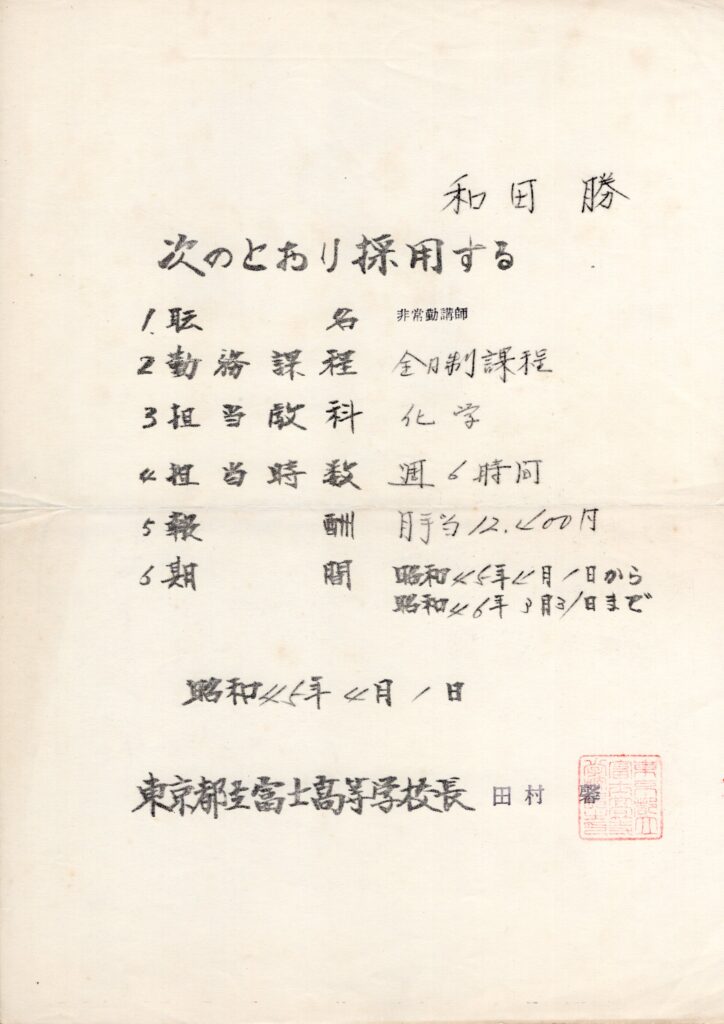 和田 勝
次のとおり採用する
1 職名 非常勤講師
2 勤務課程 全日制課程
3 担当教科 化学
4 担当時数 週6時間
5 報酬 月手当12,400円
6 期間 昭和45年4月1日から
昭和46年3月31日まで
昭和45年4月1日
東京都立富士高等学校長 田村